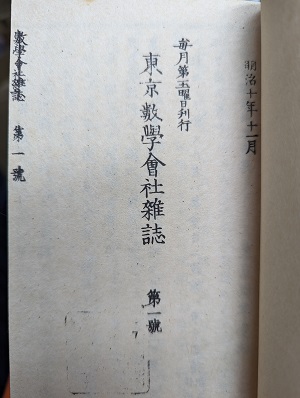 明治十年十一月
每月第一土曜日刊行
東京數學會社雜誌 第一號
數學會社雜誌 第一號